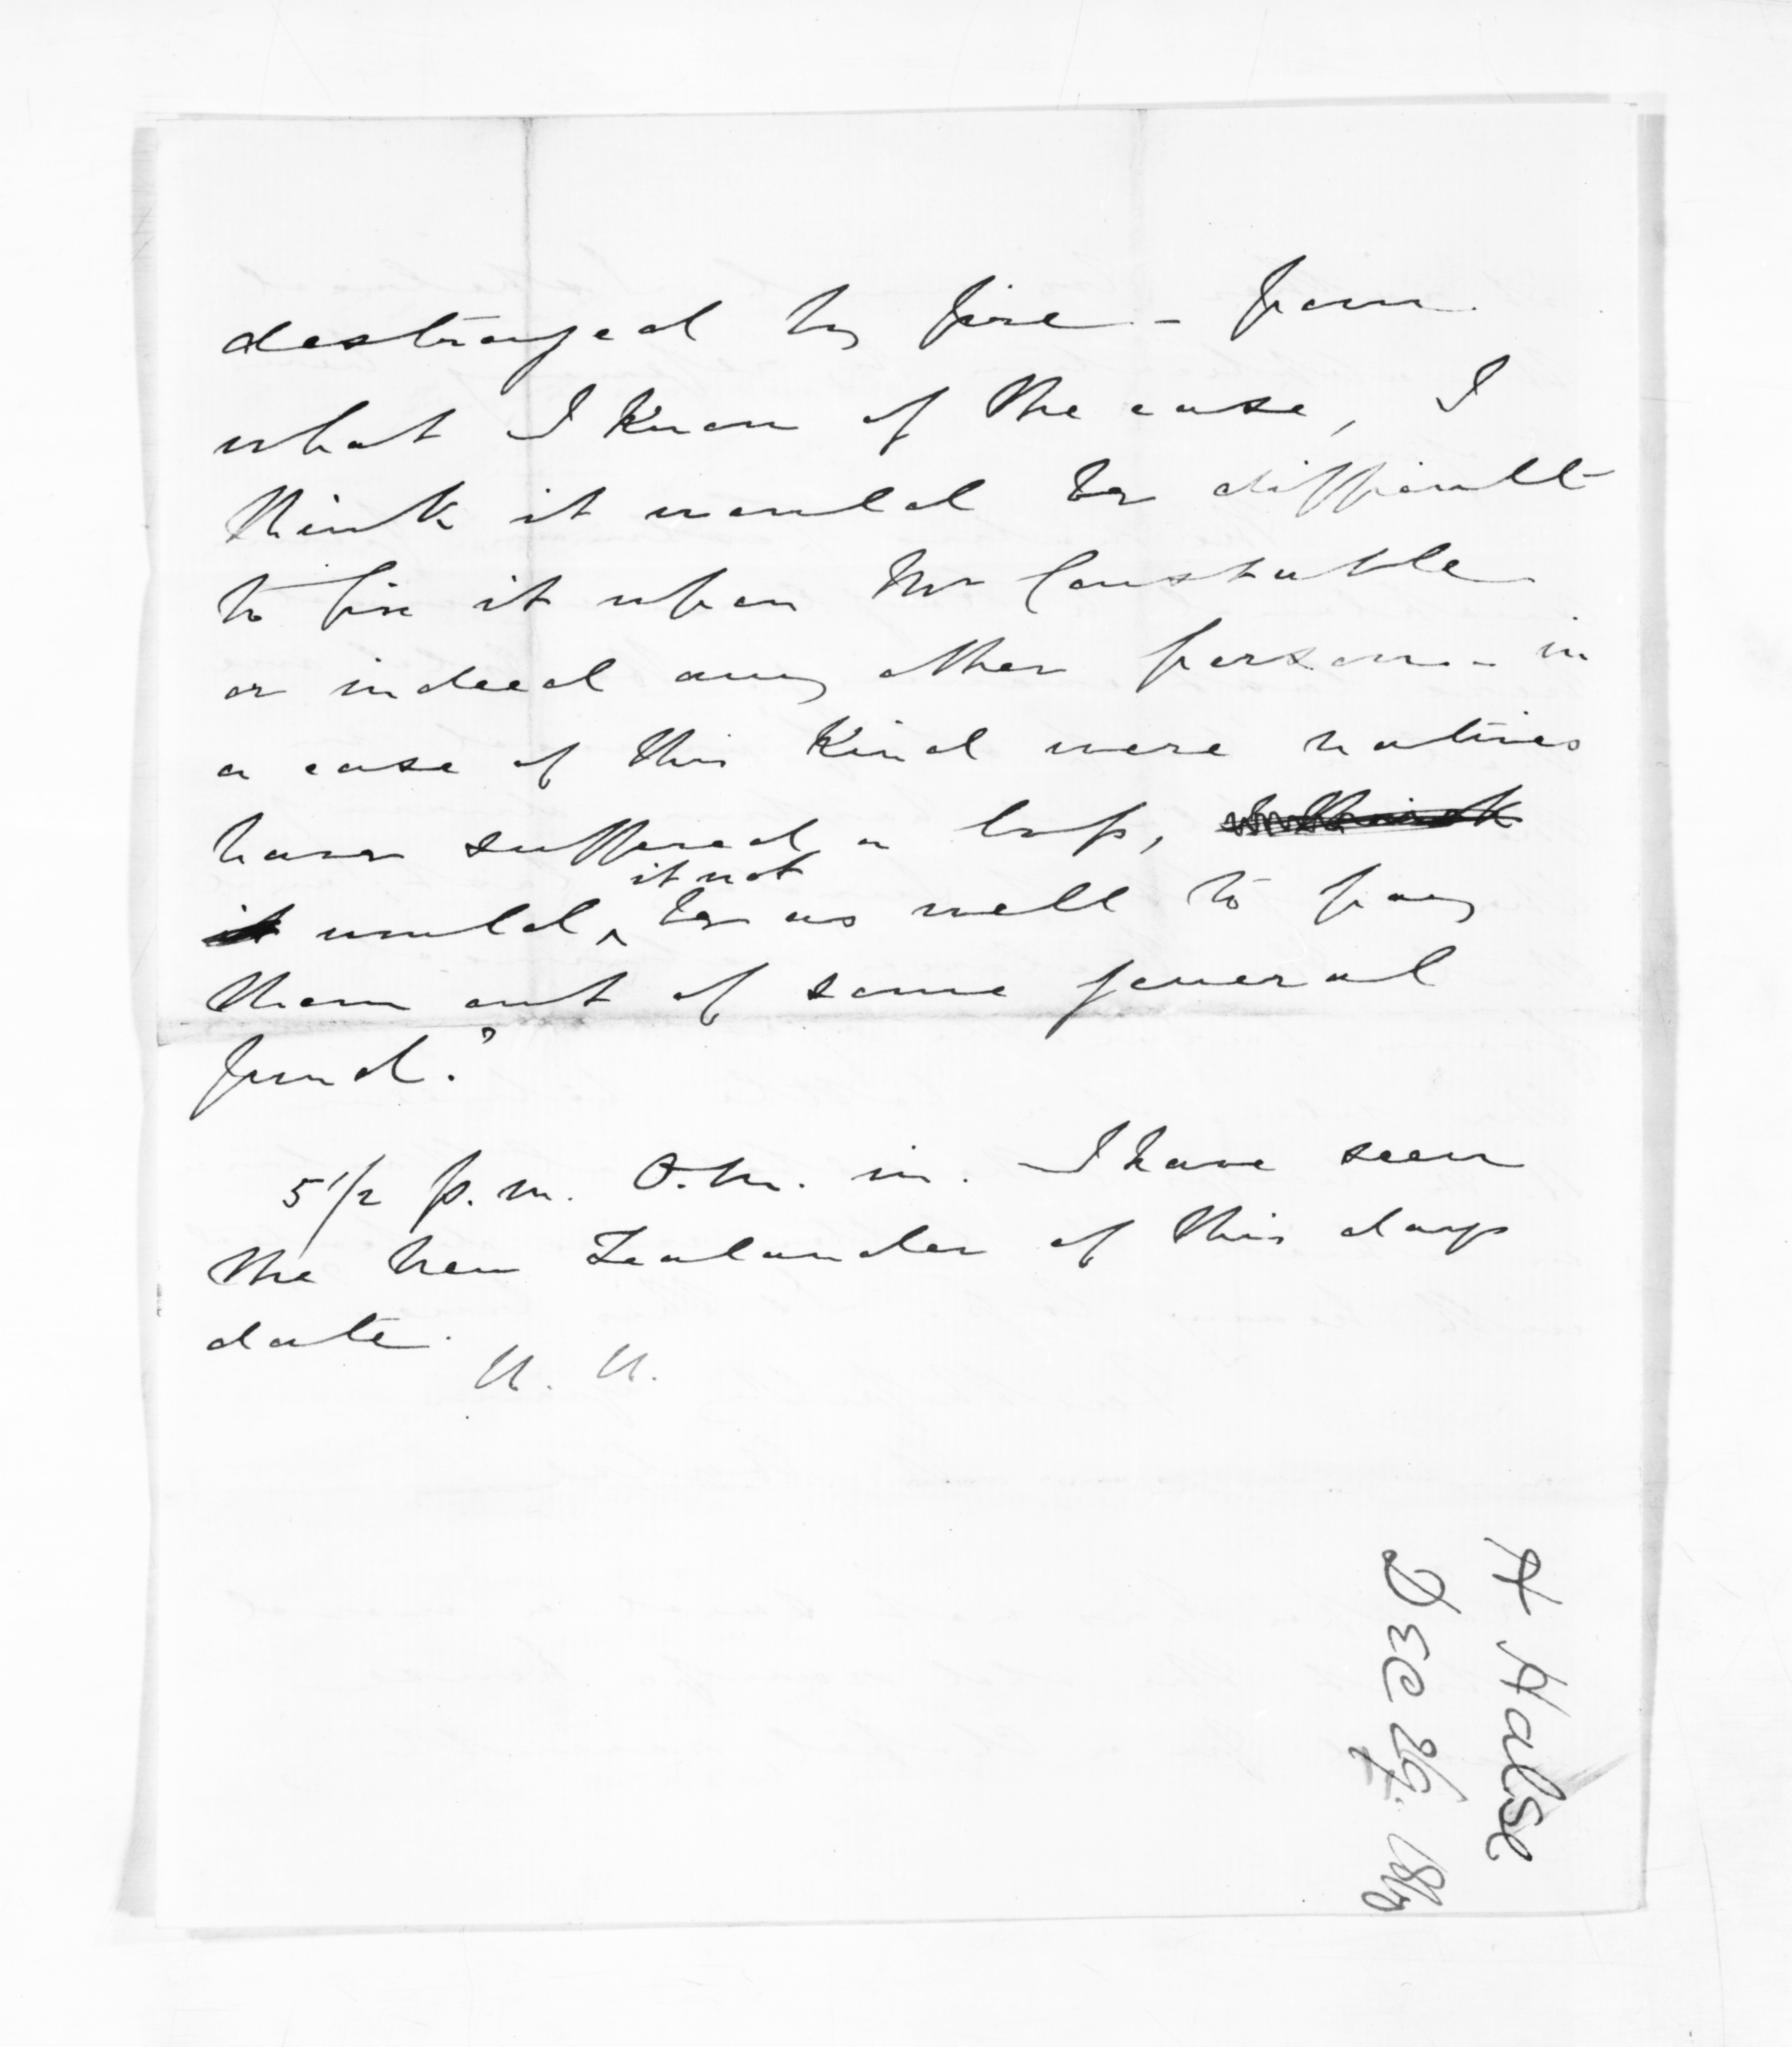 destroyed by fire - from
what I know of the case, I
think it would be difficult
to fix it upon Mr Constable
or indeed any other person - in
a case of this kind were natives
have suffered a loss,
it would, it not be as well to pay
them out of some general
fund?
5 1/2 p.m. O. M. in. I have seen
the New Zealander of this days
date.
H. H.
H Halse
Dec 29. 18